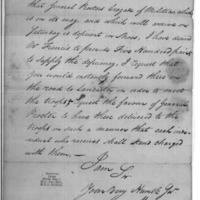 that General Porters Brigade of Militia which
is on its way and which will arrive on
Saturday is deficient in Shoes. I have directed
Mr Francis to provide Five Hundred pairs
to supply the deficiency. I request that
you would instantly forward these on
the road to Lancaster in order to meet
the Troops & request the favour of General
Procter to have these delivered to the
Troops in such a manner that each indi-
vidual who receives shall stand charged
with them —
I am
Sir
Your Very Humble Ser